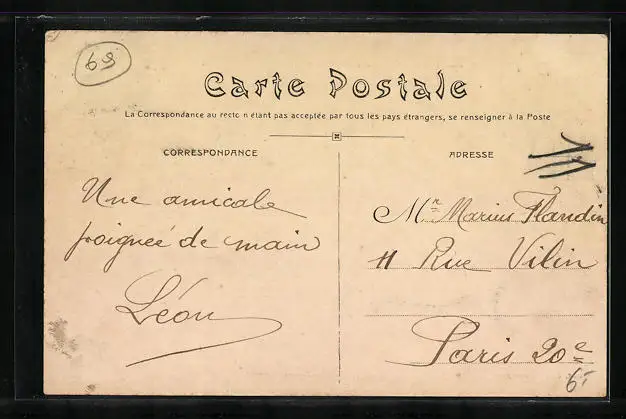 69
Carte Postale
La Correspondance au recto n'étant pas acceptée par tous les pays étrangers, se renseigner à la Poste
CORRESPONDANCE
ADRESSE
Une amicale
poignée de main
Léon
Mr Marius Flandin
11 Rue Vilin
Paris 20e
6